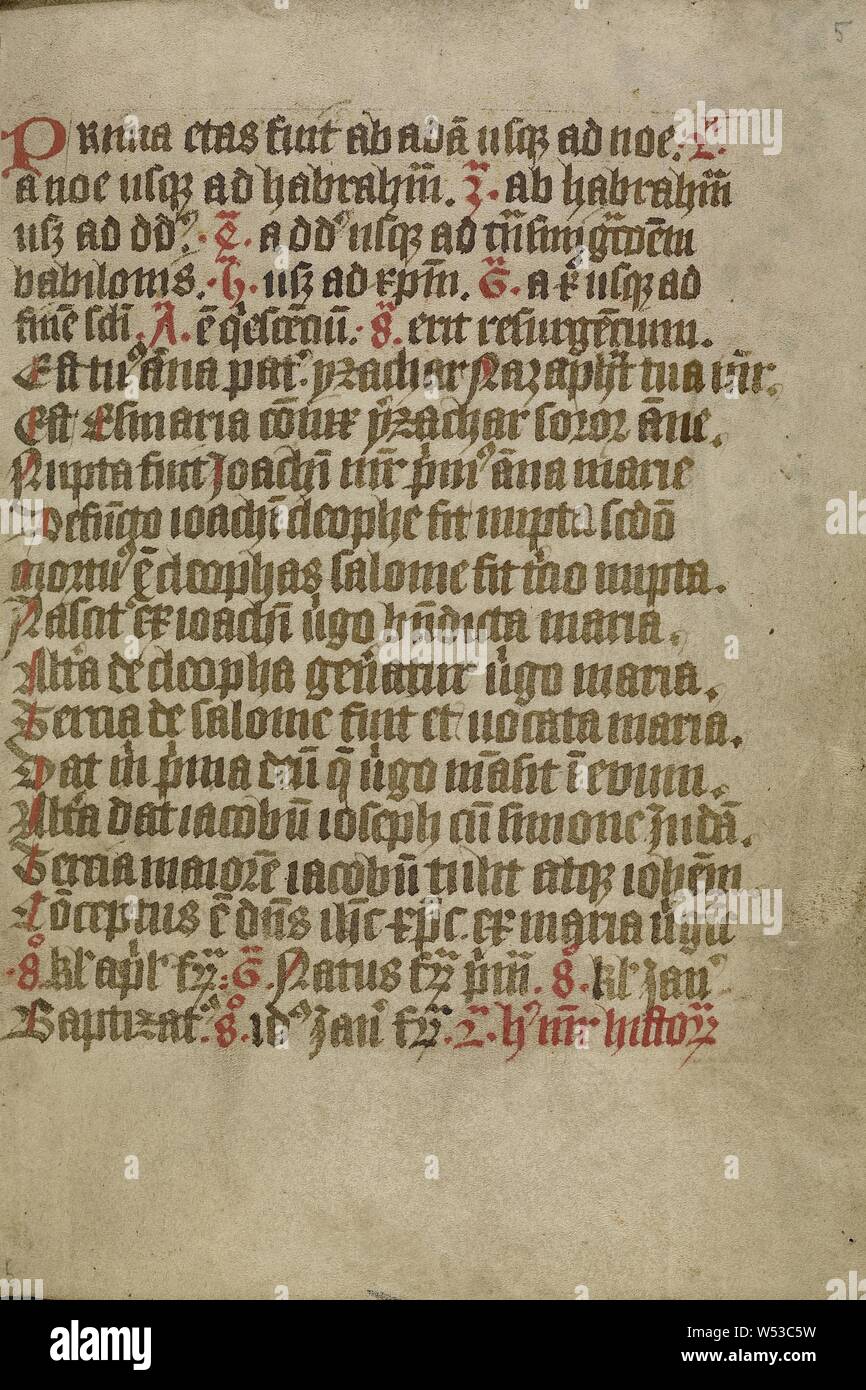 5
Prima etas fuit ab adā usq; ad noe. 2ª.
a noe usq; ad habrahā̄m. 3ª. ab habrahā̄m
usq; ad dd̄. 4ª. a dd̄ usq; ad
babilonis. 5ª. usq; ad xp̄m. 6ª. a x̄ usq; ad
finē scl̄i. 7ª. ē q̄escēciū. 8ª. erit resurgēcium.
Est tuꝰ āna pat᷑. yzachar Nazaphat tua
Est Esmaria cōiux yzachar soror āne.
Nupta fuit Joachī vir p̄mꝰ āna marie
Defūcto ioachī cleophe fit nupta scd̄o
mortuꝰ ē cleophas salome fit t̄cio nupta.
Nascit᷑ ex ioachī v̄go bn̄dicta maria.
Alt̄a de cleopha gen̄atur v̄go maria.
Tercia de salome fuit et vocata maria.
Dat m̄ p̄ma deū q̄ v̄go māsit ī evum.
Alt̄a dat iacobū ioseph cū simone Judā.
Tercia maiorē iacobū tulit atq; iohēm
Cōceptus ē dn̄s ih̄c xp̄c. ex maria v̄gīe
.8º. kl̄ ap̄l f̄r: 6ª. Natus f̄r p̄m. 8º. kl̄ Jan̄
Baptizat᷑. 8º. idꝰ Jan̄ f̄r. 2ª.
alamy
Image ID: W53C5W
www.alamy.com